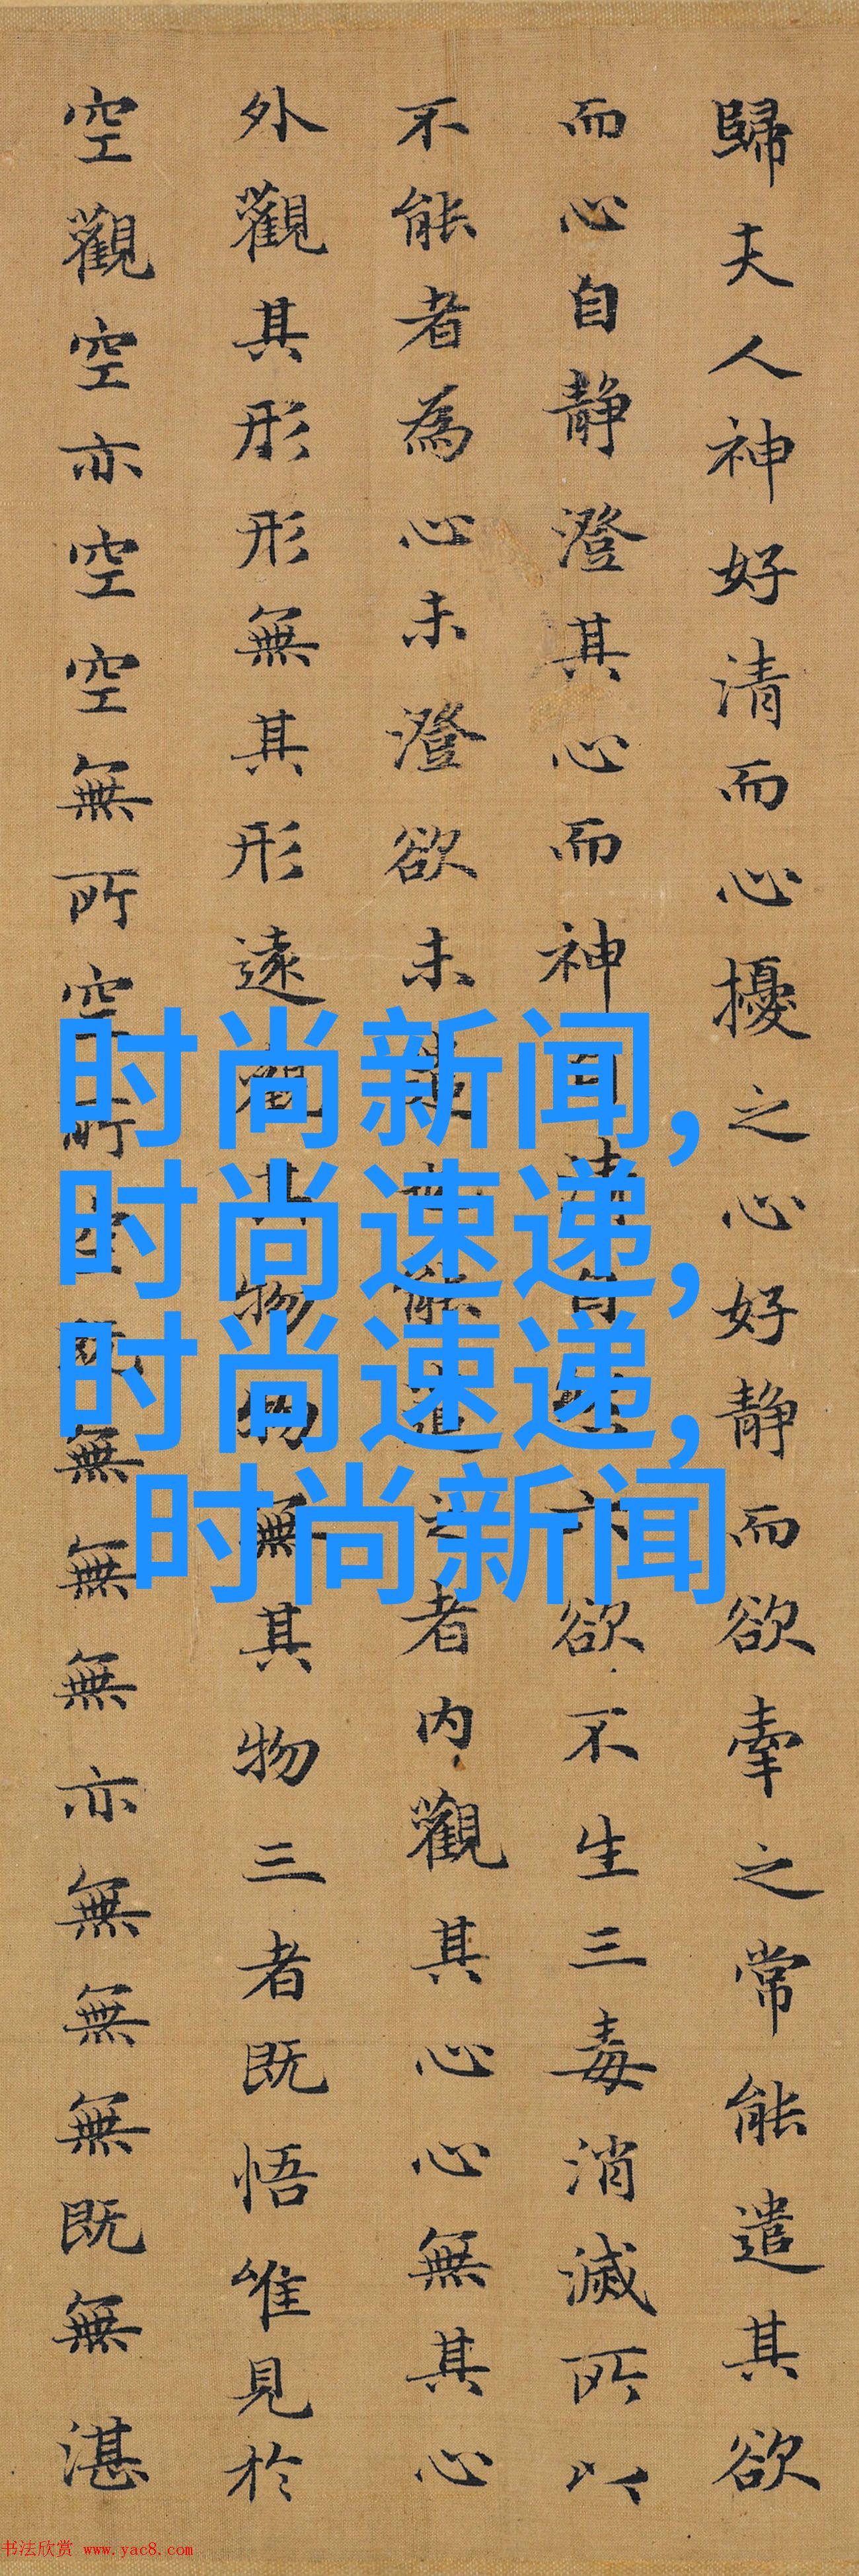 歸夫人神好清而心擾之心好静而欲牽之常能遣其欲
而心自静澄其心而神自清自然六欲不生三毒消滅所以
不能者為心未澄欲未遣也能遣之者内觀其心心無其心
外觀其形形無其形遠觀其物物無其物三者既悟唯見於
空觀空亦空空無所空所空既無無無亦無無無既無湛
时尚新闻,
时尚速递,
时尚速递,
时尚新闻
书法欣赏 www.yac8.com